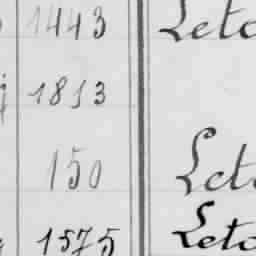 1443 Leto
1813
150 Leto
1575 Leto